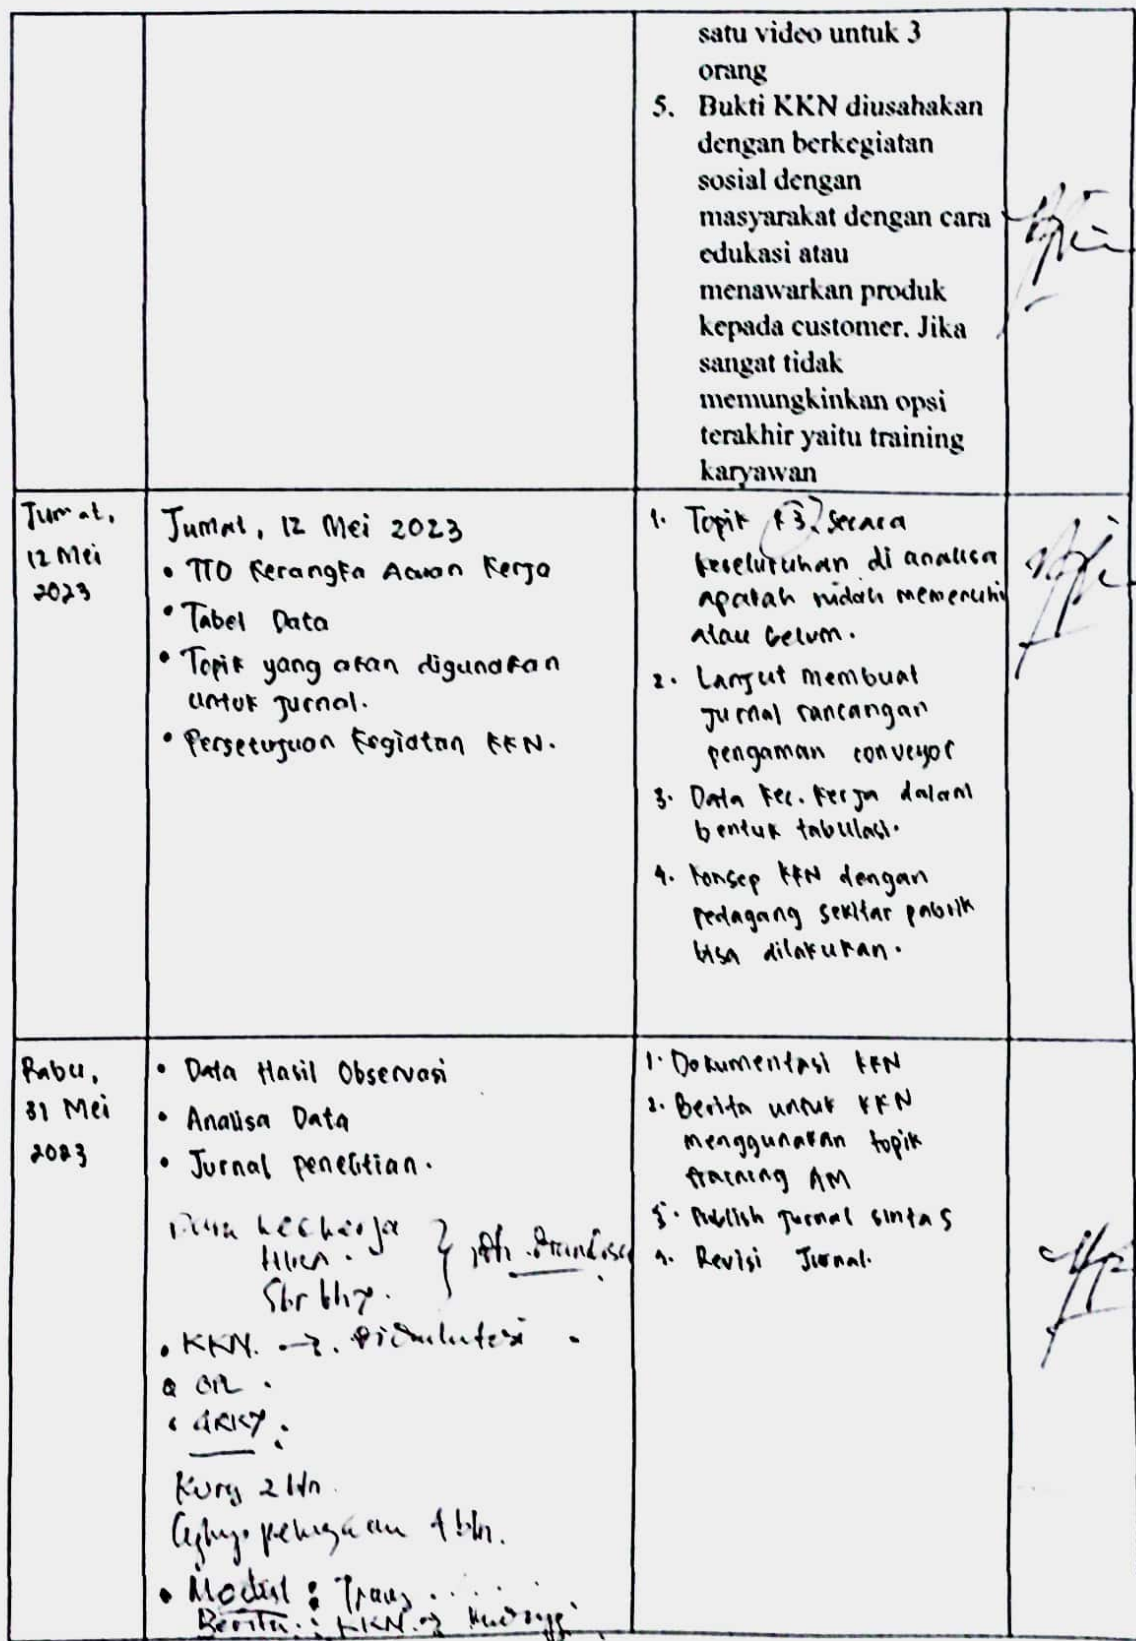 satu video untuk 3
orang
5. Bukti KKN diusahakan
dengan berkegiatan
sosial dengan
masyarakat dengan cara
edukasi atau
menawarkan produk
kepada customer. Jika
sangat tidak
memungkinkan opsi
terakhir yaitu training
karyawan
Jumat,
12 Mei
2023
Jumat, 12 Mei 2023
• TTD Kerangka Acuan Kerja
• Tabel Data
• Topik yang akan digunakan
untuk jurnal.
• Persetujuan Kegiatan KKN.
1. Topik K3 secara
keseluruhan di analisa
apakah sudah memenuhi
atau belum.
2. Lanjut membuat
jurnal rancangan
pengaman conveyor
3. Data kec. kerja dalam
bentuk tabulasi.
4. Konsep KKN dengan
pedagang sekitar pabrik
bisa dilakukan.
Rabu,
31 Mei
2023
• Data Hasil Observasi
• Analisa Data
• Jurnal penelitian.
• KKN. →
Kurg 2 bln.
4 bln.
• Modul :
Berita : KKN. →
1. Dokumentasi KKN
2. Berita untuk KKN
menggunakan topik
training AM
3. Publish jurnal sinta 5
4. Revisi Jurnal.